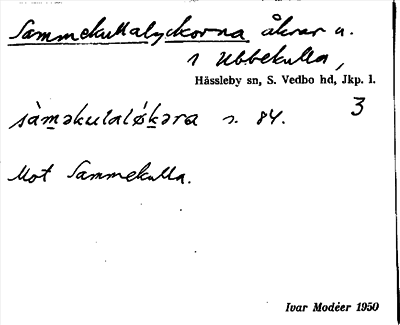 Sammekullalyckorna åkrar u.
1 Ubbekulla,
Hässleby sn, S. Vedbo hd, Jkp. l.
3
sàməkulalýkəra s. 84.
Mot Sammekulla.
Ivar Modéer 1950